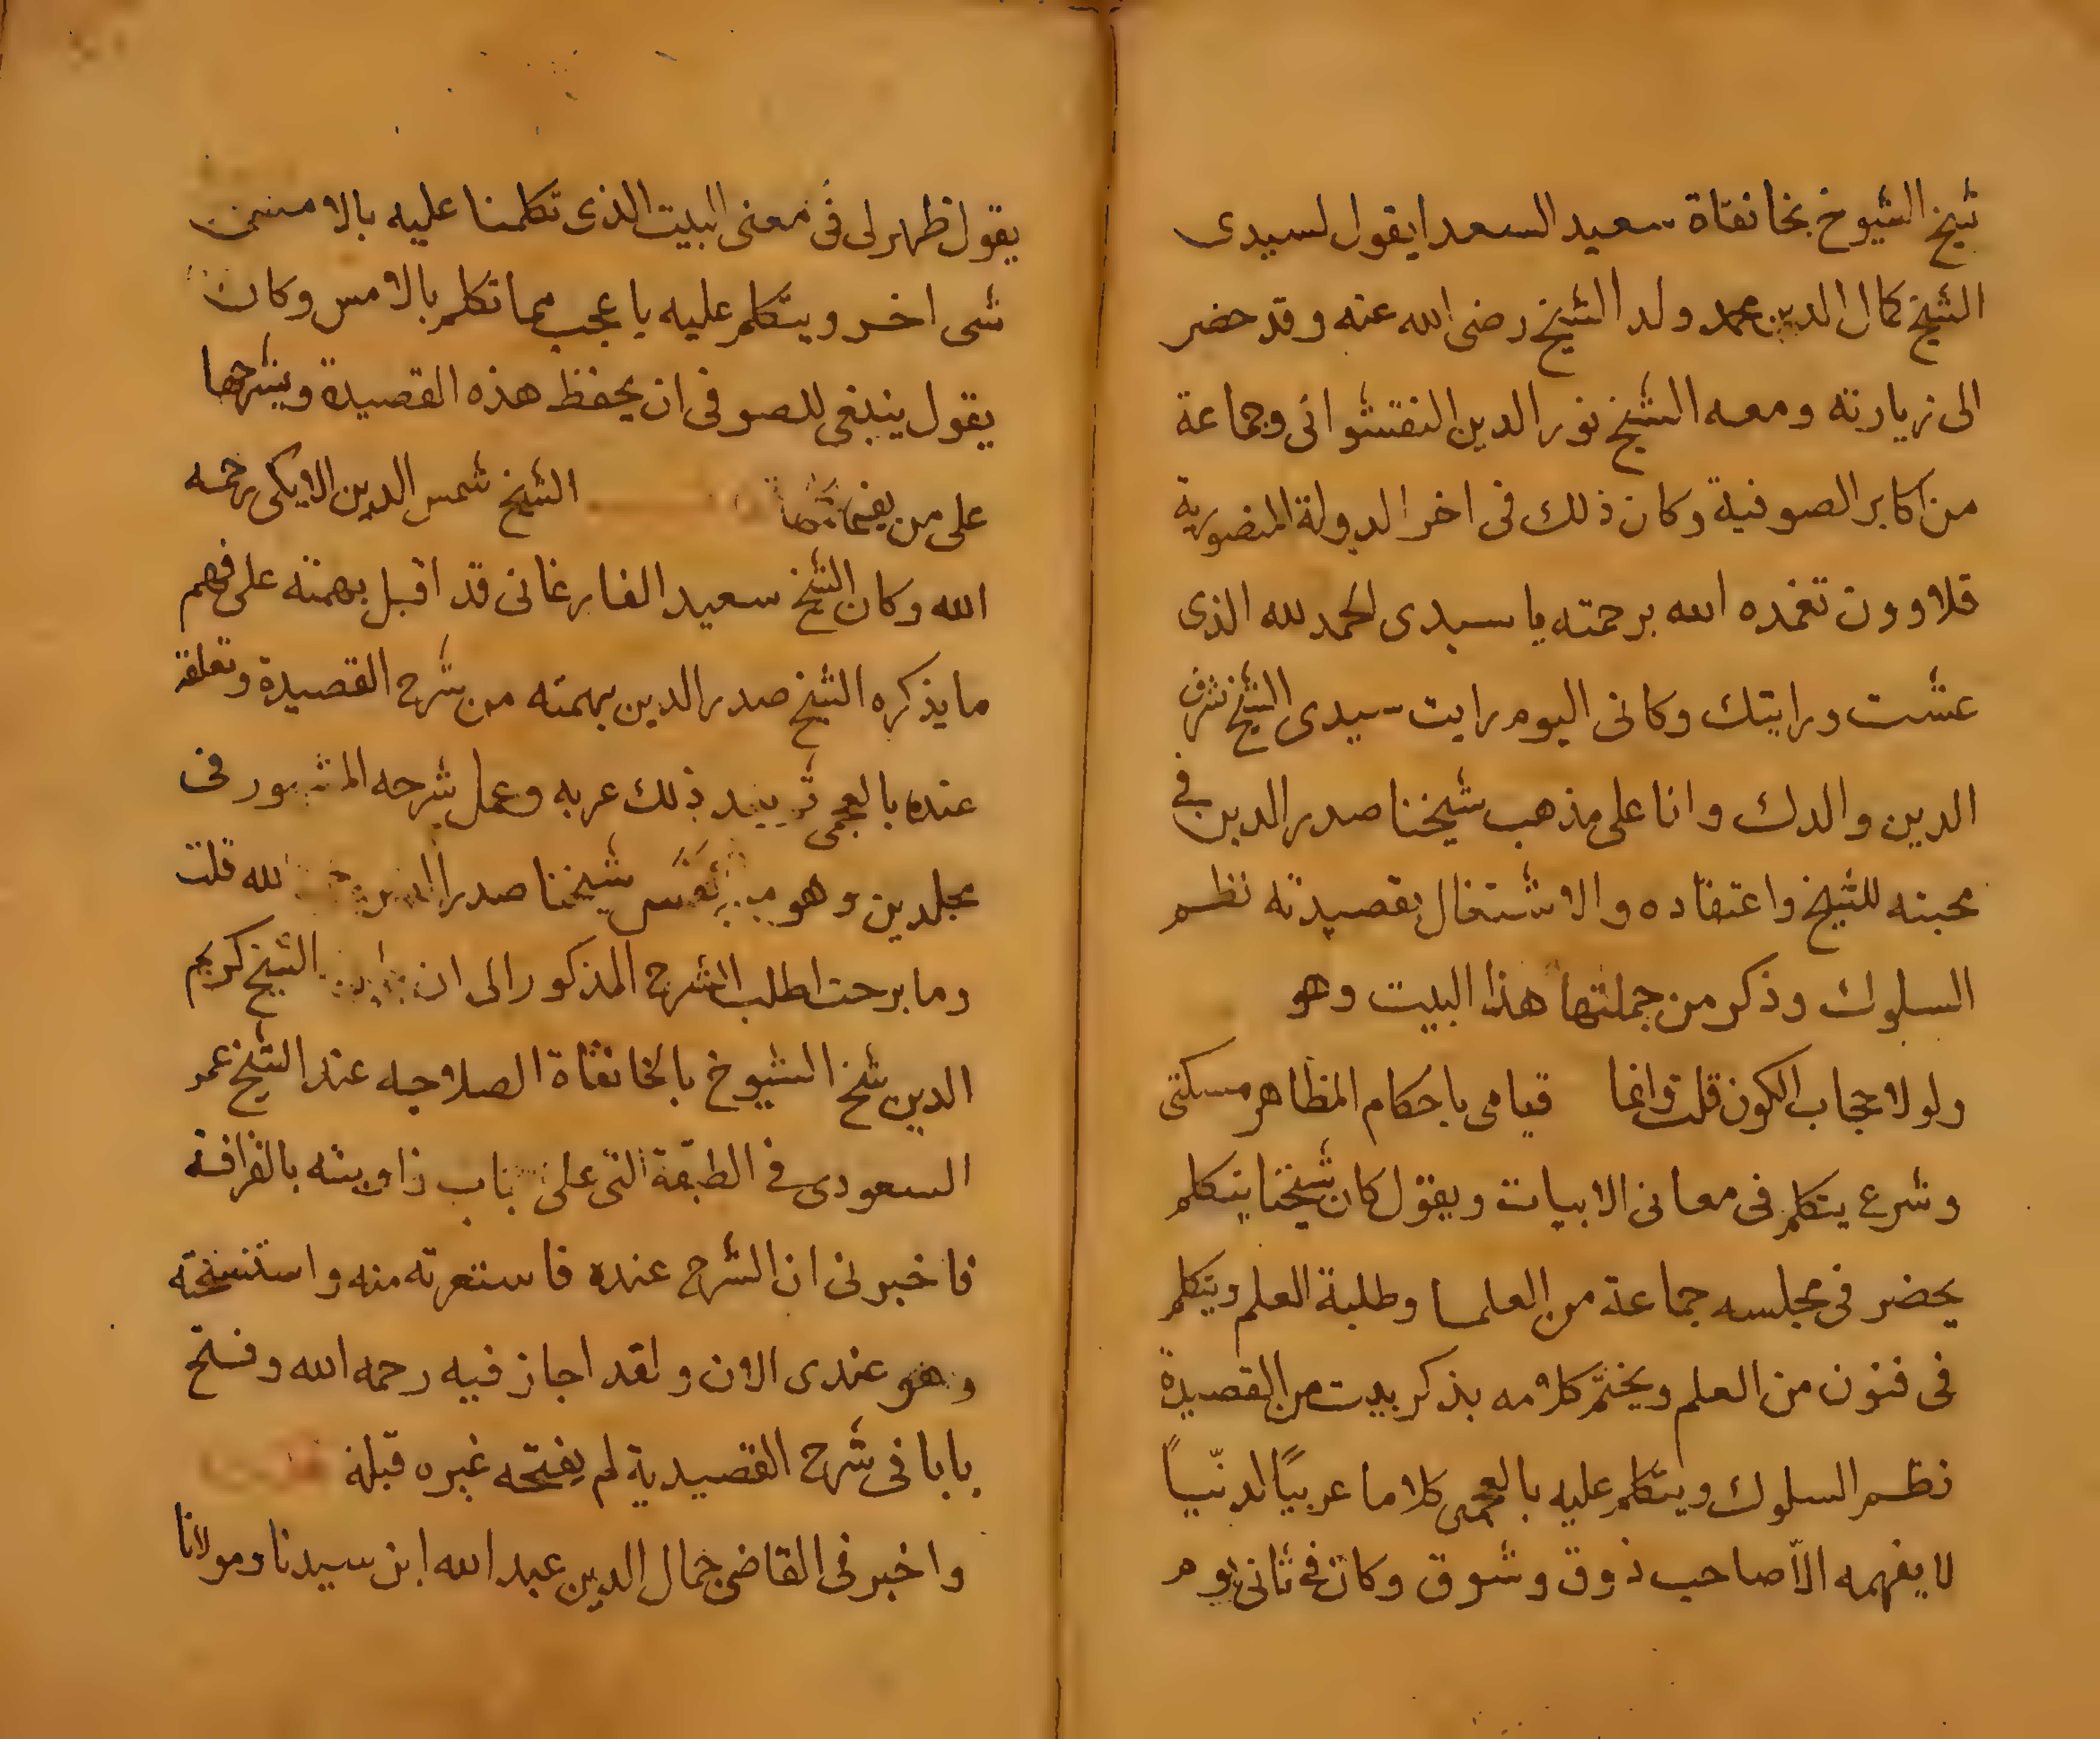 شيخ الشيوخ بخانقاة سعيد السعدا يقول لسيدى
الشيخ كمال الدين محمد ولد الشيخ رضى الله عنه وقد حضر
الى زيارته ومعه الشيخ نور الدين النقشوانى وجماعة
من اكابر الصوفية وكان ذلك فى اخر الدولة المنصورية
قلاوون تغمده الله برحمته يا سيدى الحمد لله الذى
عشت ورايتك وكانى اليوم رايت سيدى الشيخ شرف
الدين والدك وانا على مذهب شيخنا صدر الدين فى
محبته للشيخ واعتقاده والاشتغال بقصيدته نظم
السلوك وذكر من جملتها هذا البيت وهو
ولولا حجاب الكون قلت وانما قيامى باحكام المظاهر مسكتى
وشرع يتكلم فى معانى الابيات ويقول كان شيخنا يتكلم
يحضر فى مجلسه جماعة من العلما وطلبة العلم ويتكلم
فى فنون من العلم ويختم كلامه بذكر بيت من القصيدة
نظم السلوك ويتكلم عليه بالعجمى كلاما عربيًا لدنّيًا
لا يفهمه الاّ صاحب ذوق وشوق وكان فى ثانى يوم
يقول ظهر لى فى معنى البيت الذى تكلمنا عليه بالامس
شى اخر ويتكلم عليه باعجب مما تكلم بالامس وكان
يقول ينبغى للصوفى ان يحفظ هذه القصيدة ويشرحها
على من يفهمها الشيخ شمس الدين الايكى رحمه
الله وكان الشيخ سعيد الفارغانى قد اقبل بهمته على فهم
ما يذكره الشيخ صدر الدين بهمته من شرح القصيدة وتعلقه
عنده بالعجمى ذلك عربه وعمل شرحه المشهور فى
مجلدين وهو من نَفَس شيخنا صدر الدين لله قلت
وما برحت اطلب الشرح المذكور الى ان الشيخ كريم
الدين شيخ الشيوخ بالخانقاة الصلاحيه عند الشيخ عمر
السعودى فى الطبقة التى على باب زاويته بالقرافة
فاخبرنى ان الشرح عنده فاستعرته منه واستنسخته
وهو عندى الان ولقد اجاز فيه رحمه الله وفتح
بابا فى شرح القصيدية لم يفتحه غيره قبله
واخبرنى القاضى جمال الدين عبد الله ابن سيدنا ومولانا